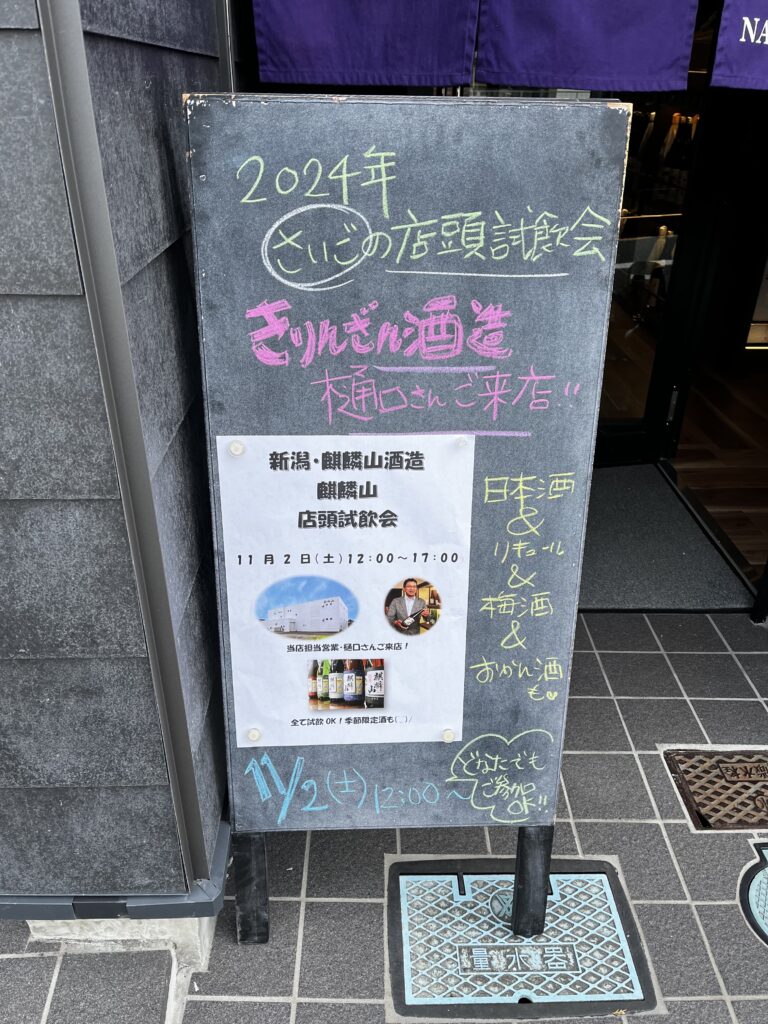 NA
2024年
さいごの店頭試飲会
きりんざん酒造
樋口さんご来店!!
新潟・麒麟山酒造
麒麟山
店頭試飲会
11月2日(土)12:00～17:00
当店担当営業・樋口さんご来店!
麒麟山
全て試飲OK!季節限定酒も(‿)/
日本酒
&
リキュール
&
梅酒
&
おかん酒
も♥
11/2(土)12:00～
どなたでも
ご参加
OK!!
量水器